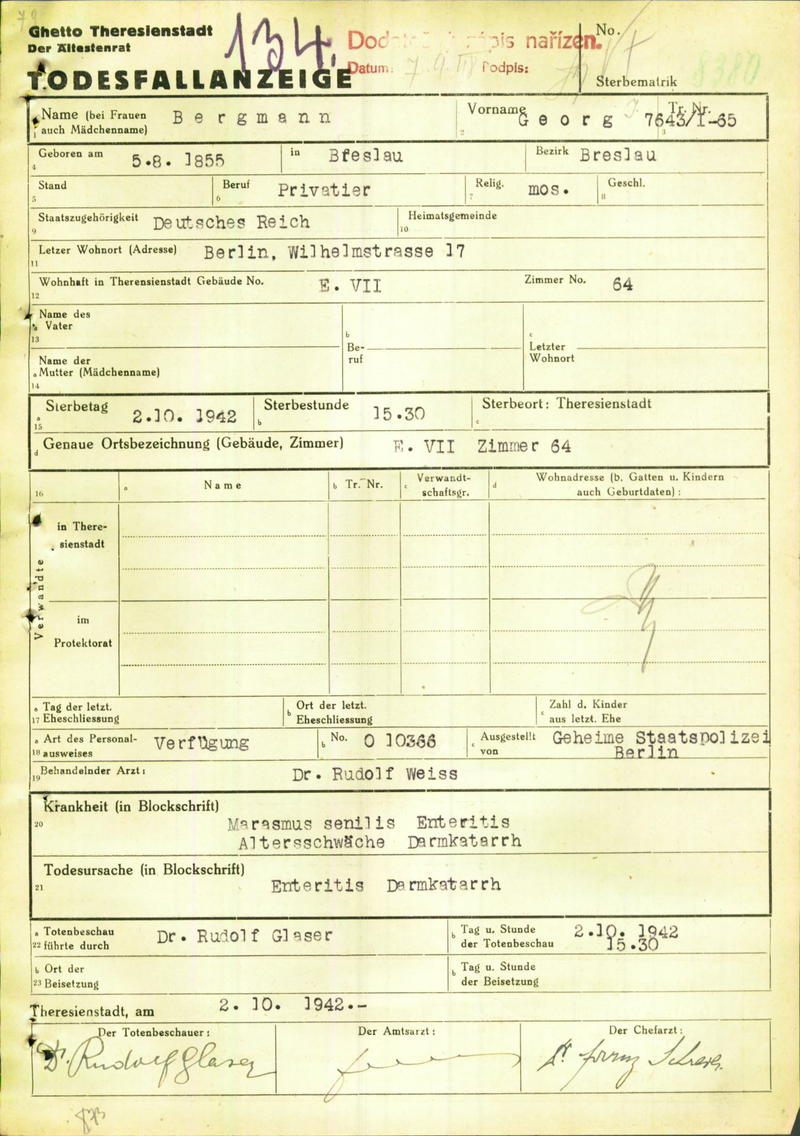 Ghetto Theresienstadt
Der Ältestenrat
134.
nařízen.
Datum: Podpis:
No.
TODESFALLANZEIGE
Sterbematrik
8380
Name (bei Frauen auch Mädchenname) Bergmann Vorname Georg Tr. Nr. 7643/I-65
1 2 3
Geboren am 5.8. 1855 in Bfeslau Bezirk Breslau
4
Stand Beruf Privatier Relig. mos. Geschl.
5 6 7 8
Staatszugehörigkeit Deutsches Reich Heimatsgemeinde
9 10
Letzer Wohnort (Adresse) Berlin, Wilhelmstrasse 17
11
Wohnhaft in Therensienstadt Gebäude No. E. VII Zimmer No. 64
12
Name des
a Vater
13
b Beruf
c Letzter Wohnort
Name der
a Mutter (Mädchenname)
14
Sterbetag 2.10. 1942 Sterbestunde 15.30 Sterbeort: Theresienstadt
a 15 b c
d Genaue Ortsbezeichnung (Gebäude, Zimmer) E. VII Zimmer 64
16 a Name b Tr. Nr. c Verwandtschaftsgr. d Wohnadresse (b. Gatten u. Kindern auch Geburtdaten) :
Verwandte
in Theresienstadt
im Protektorat
a Tag der letzt. b Ort der letzt. c Zahl d. Kinder
17 Eheschliessung Eheschliessung aus letzt. Ehe
a Art des Personal- Verfügung b No. O 10366 c Ausgestellt Geheime Staatspolizei
18 ausweises von Berlin
19 Behandelnder Arzt: Dr. Rudolf Weiss
Krankheit (in Blockschrift)
20 Marasmus senilis Enteritis
Altersschwäche Darmkatarrh
Todesursache (in Blockschrift)
21 Enteritis Darmkatarrh
a Totenbeschau Dr. Rudolf Glaser b Tag u. Stunde 2.10. 1942
22 führte durch der Totenbeschau 15.30
b Ort der b Tag u. Stunde
23 Beisetzung der Beisetzung
Theresienstadt, am 2. 10. 1942.-
Der Totenbeschauer: Der Amtsarzt: Der Chefarzt:
Dr. Rudolf Glaser Dr Franz